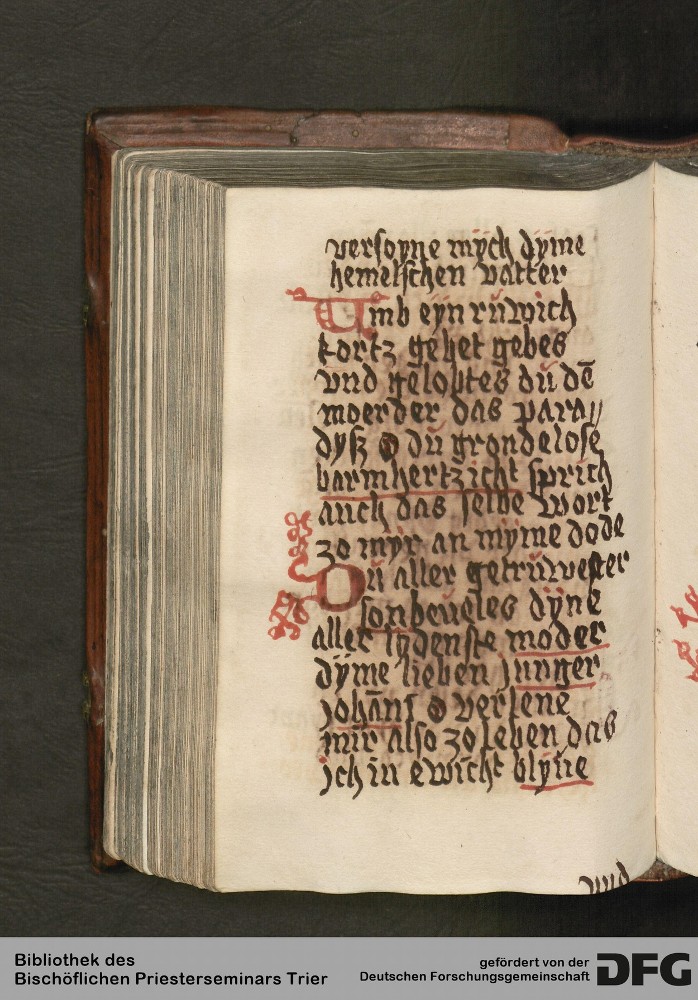 versoyne mÿch dÿme
hemelschen vatter
Umb eÿn rüwich
kortz gebet gebes
vnd gelobtes dü dē
moerder das para//
dÿß O dü grondelose
barmhertzicht sprich
auch das selbe wort
zo mÿr an mÿme dode
Dü aller getrüwester
son beueles dÿne
aller lÿdenste moder
dÿme lieben junger
johāns O verlene
mir also zo leben das
jch in ewicht blÿue
vnd
Bibliothek des
Bischöflichen Priesterseminars Trier
gefördert von der
Deutschen Forschungsgemeinschaft
DFG